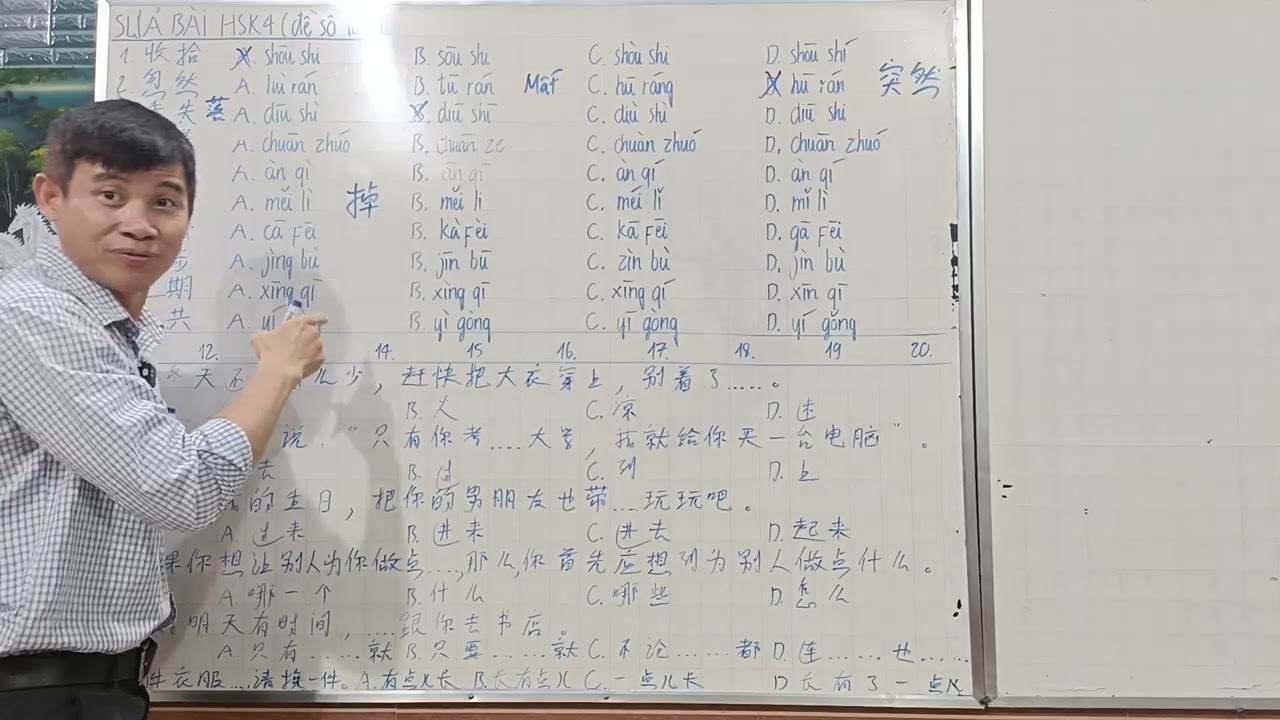 SỬA BÀI HSK4 (đề số
1. 收拾 A. shōu shi B. sōu shi C. shòu shi D. shōu shí
2. 忽然 A. hù rán B. tū rán Mất C. hū ráng D. hū rán 突然
失 落 A. diū shì B. diū shī C. diù shi D. diū shi
A. chuān zhuó B. chuān ze C. chuàn zhuó D. chuān zhuó
A. àn qì B. ān qí C. àn qí D. àn qí
A. měi lì 掉 B. měi lì C. méi lǐ D. mǐ lì
A. cā fēi B. kà fèi C. kā fēi D. gā fēi
步 A. jìng bù B. jīn bū C. zìn bù D. jìn bù
期 A. xīng qī B. xing qī C. xīng qí D. xīn qī
共 A. yí B. yì gòng C. yī gòng D. yí gǒng
12. 14. 15 16. 17. 18. 19 20.
冬天还 么少，赶快把大衣穿上，别着了.....。
B. 人 C. 凉 D. 迷
说，“只有你考....大学，我就给你买一台电脑”。
去 B. 过 C. 到 D. 上
的生日，把你的男朋友也带....玩玩吧。
A. 过来 B. 进来 C. 进去 D. 起来
果你想让别人为你做点....，那么，你首先应想到为别人做点什么。
A. 哪一个 B. 什么 C. 哪些 D. 怎么
明天有时间，....跟你去书店。
A. 只有......就 B. 只要......就 C. 不论......都 D. 连......也......
件衣服...，请换一件。A. 有点儿长 B. 长有点儿 C. 一点儿长 D 长有了一点儿